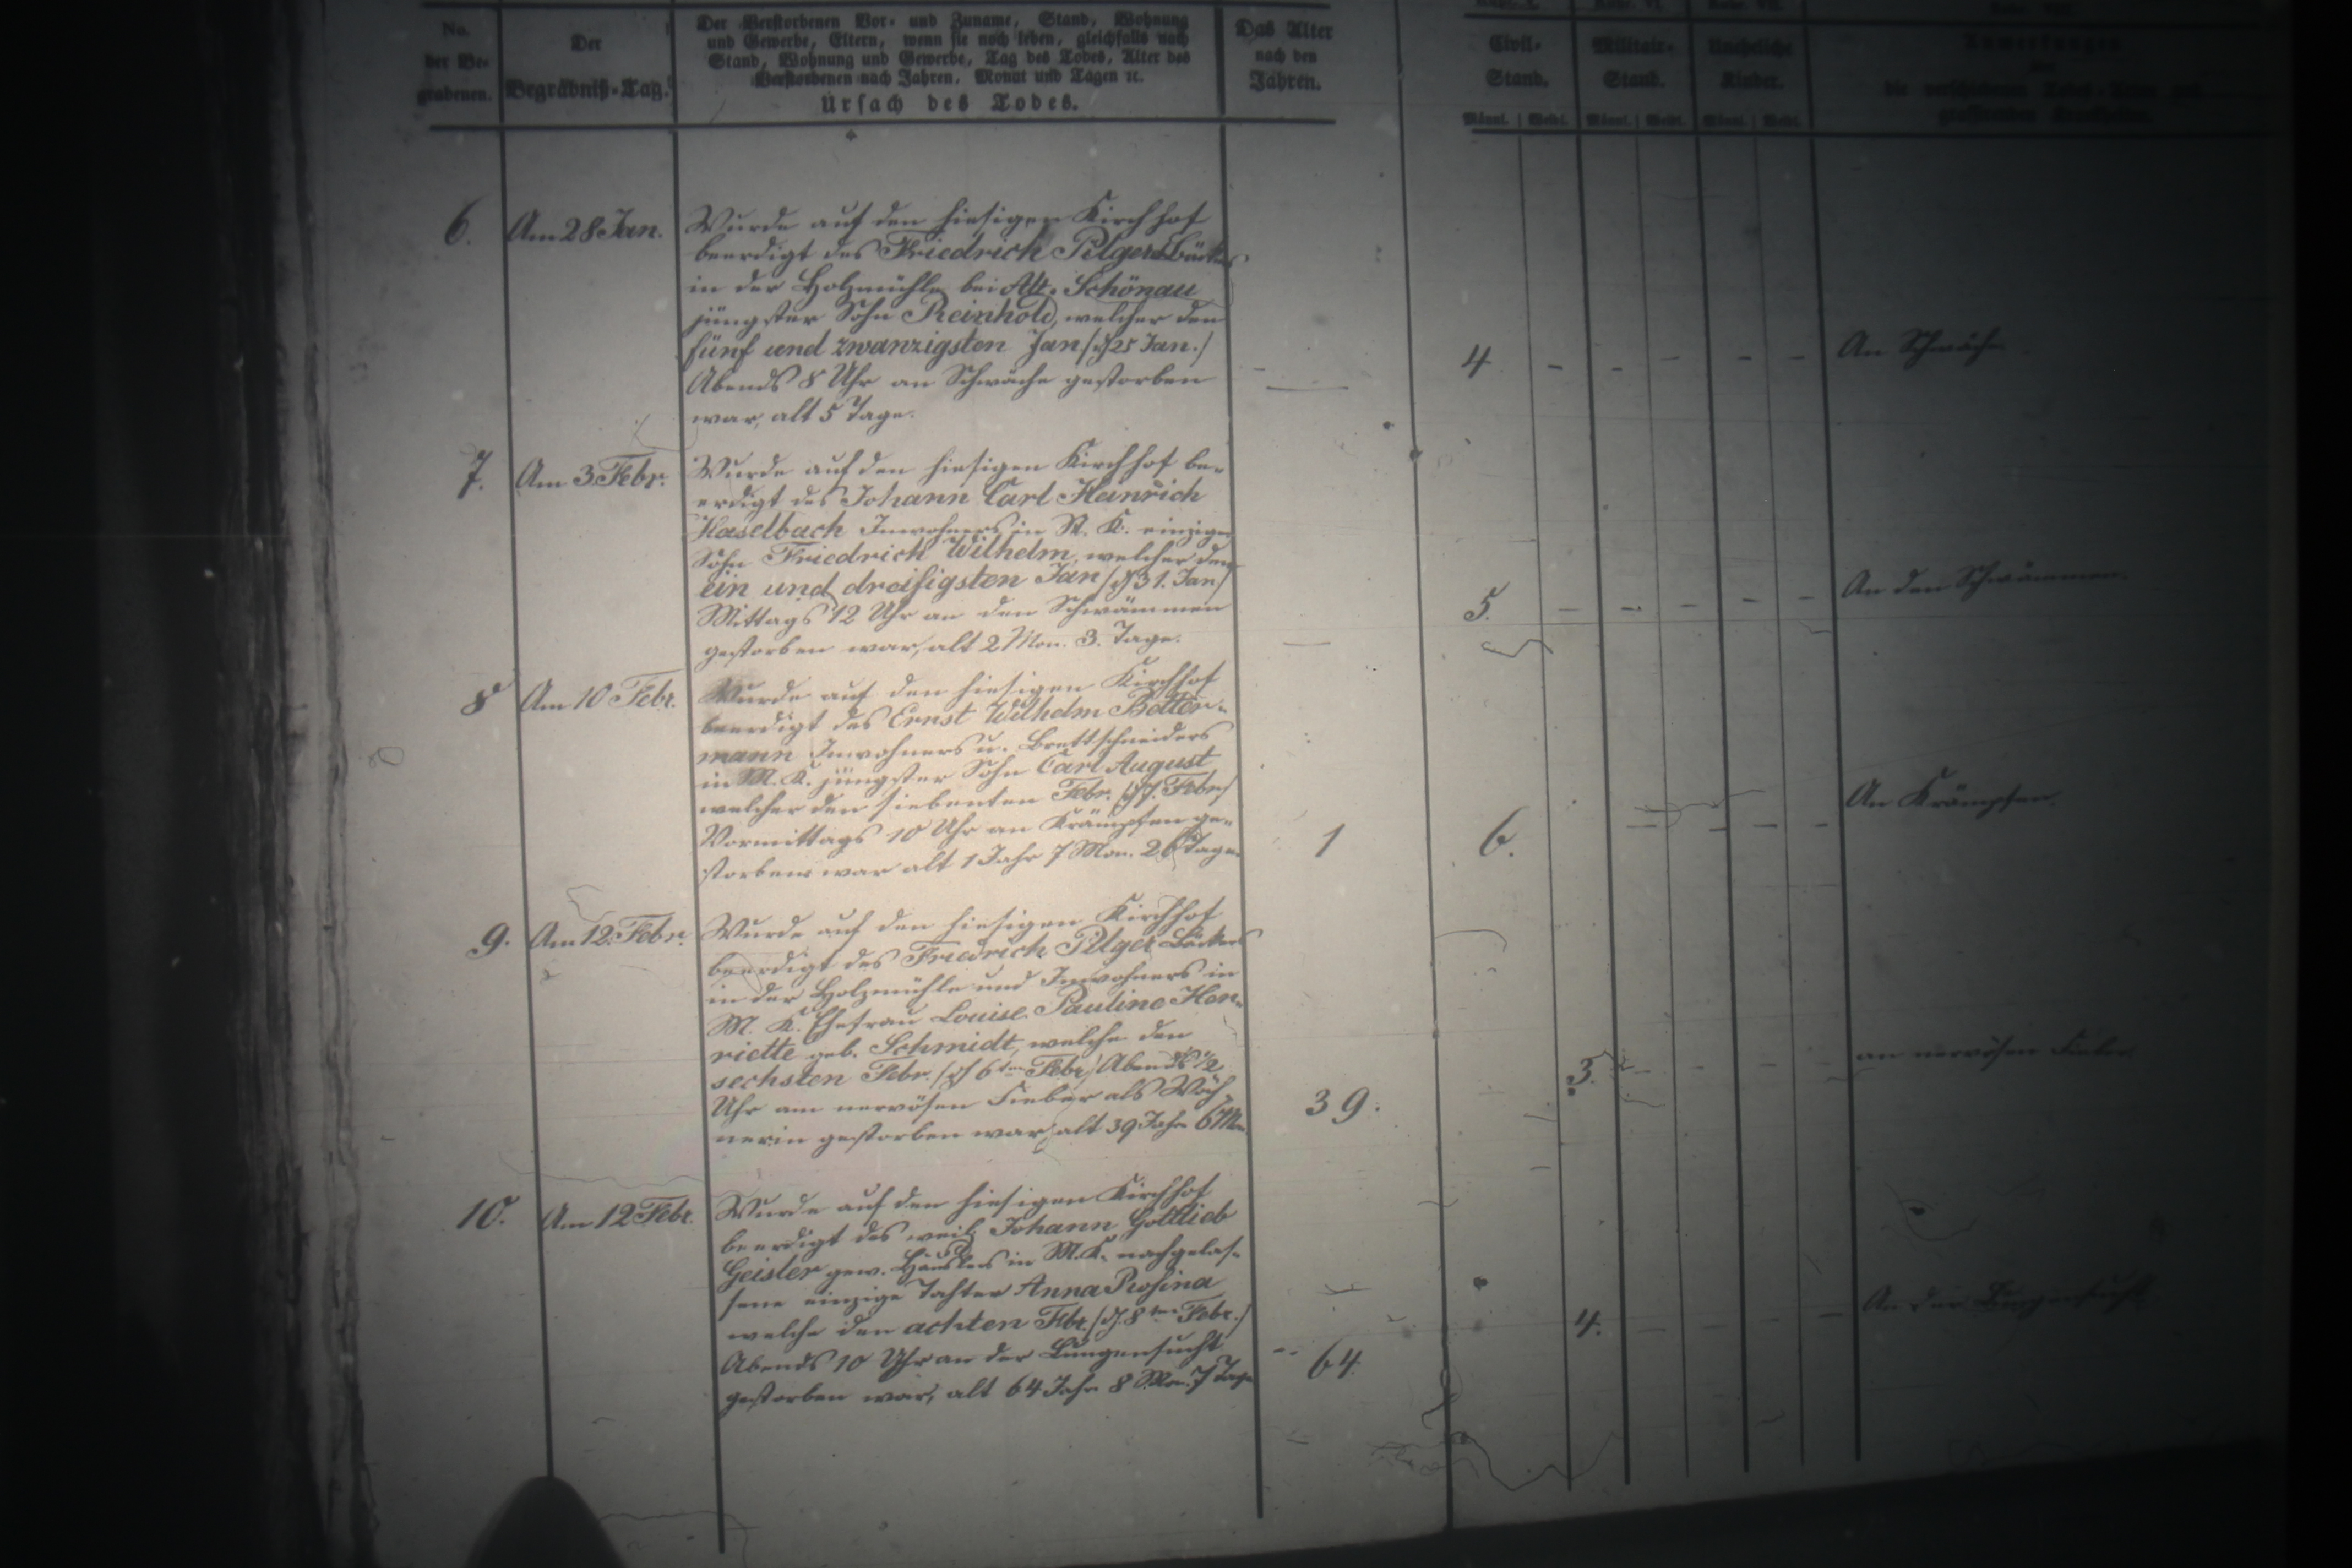 No.
der Be-
grabenen.
Der
Begräbniß-Tag.
Der Verstorbenen Vor- und Zuname, Stand, Wohnung
und Gewerbe, Eltern, wenn sie noch leben, gleichfalls nach
Stand, Wohnung und Gewerbe, Tag des Todes, Alter des
Verstorbenen nach Jahren, Monat und Tagen ꝛc.
Ursach des Todes.
Das Alter
nach den
Jahren.
Civil-
Stand.
Militair-
Stand.
Uneheliche
Kinder.
Männl. Weibl. Männl. Weibl. Männl. Weibl.
6. Am 28 Jan.
Wurde auf den hiesigen Kirchhof
beerdigt des Friedrich Pilger Bäckers
in der Holzmühle bei Alt-Schönau
jüngster Sohn Reinhold, welcher den
fünf und zwanzigsten Jan /d. 25 Jan./
Abends 8 Uhr an Schwäche gestorben
war, alt 5 Tage.
4 - - - - - An Schwäche
7. Am 3. Febr.
Wurde auf den hiesigen Kirchhof be-
erdigt des Johann Carl Heinrich
Haselbach Inwohners in K. einziger
Sohn Friedrich Wilhelm, welcher den
ein und dreißigsten Jan /d. 31. Jan/
Mittags 12 Uhr an den Schwämmen
gestorben war, alt 2 Mon. 3. Tage.
5. - - - - - An den Schwämmen.
8 Am 10 Febr.
Wurde auf den hiesigen Kirchhof
beerdigt des Ernst Wilhelm Better-
mann Inwohners u. Brettschneiders
in M. K. jüngster Sohn Carl August
welcher den siebenten Febr. /d. 7. Febr/
Vormittags 10 Uhr an Krämpfen ge-
storben war alt 1 Jahr 7 Mon. Tage.
1 6. - - - - An Krämpfen.
9. Am 12. Febr.
Wurde auf den hiesigen Kirchhof
beerdigt des Friedrich Pilger Bäckers
in der Holzmühle und Inwohners in
M. K. Ehefrau Louise Pauline Hen-
riette geb. Schmidt, welche den
sechsten Febr. /d. 6ten Febr/ Abends 1/2
Uhr am nervösen Fieber als Wöch-
nerin gestorben war, alt 39 Jahr 6 Mon.
39. 3. - - - - an nervösen Fieber
10. Am 12 Febr.
Wurde auf den hiesigen Kirchhof
beerdigt des weil. Johann Gottlieb
Geisler gew. Häuslers in M. K. nachgelas-
sene einzige Tochter Anna Rosina
welche den achten Febr. /d. 8ten Febr./
Abends 10 Uhr an der Lungensucht
gestorben war, alt 64 Jahr 8 Mon. 7 Tage
64. 4. - - - - An der Lungensucht